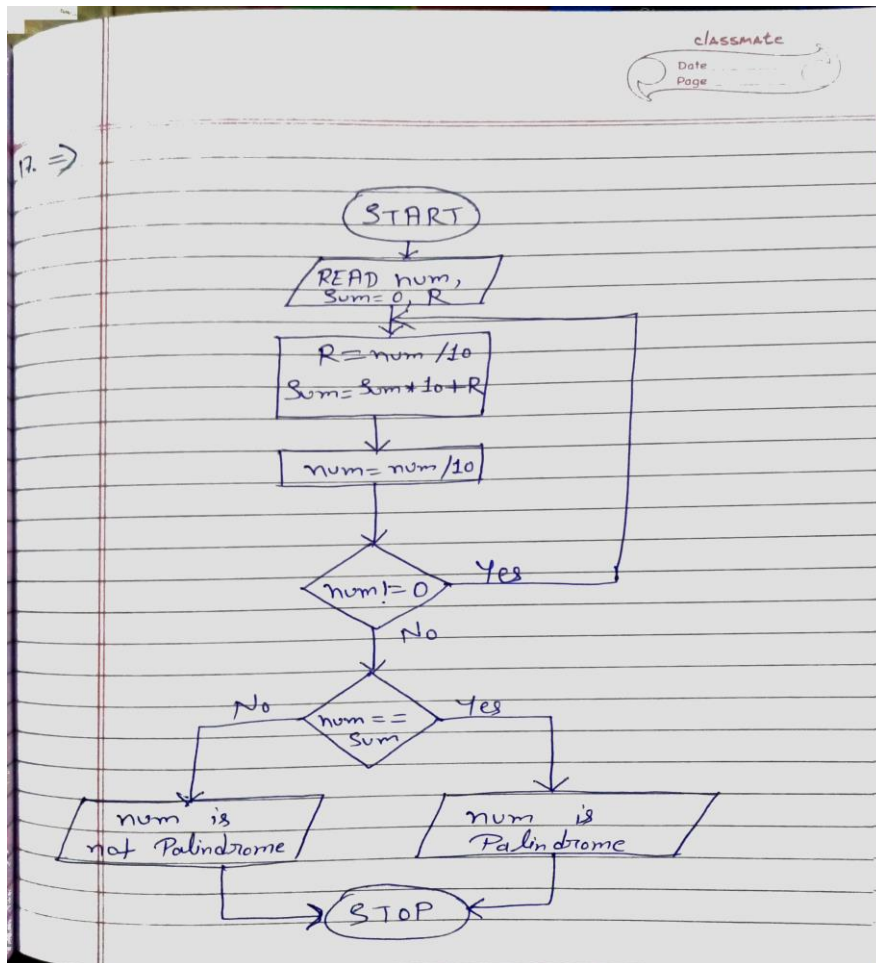 classmate
Date
Page
17. ⇒
START
READ num,
Sum=0, R
R=num/10
Sum=Sum*10+R
num=num/10
num!=0
Yes
No
No
num==
Sum
Yes
num is
not Palindrome
num is
Palindrome
STOP